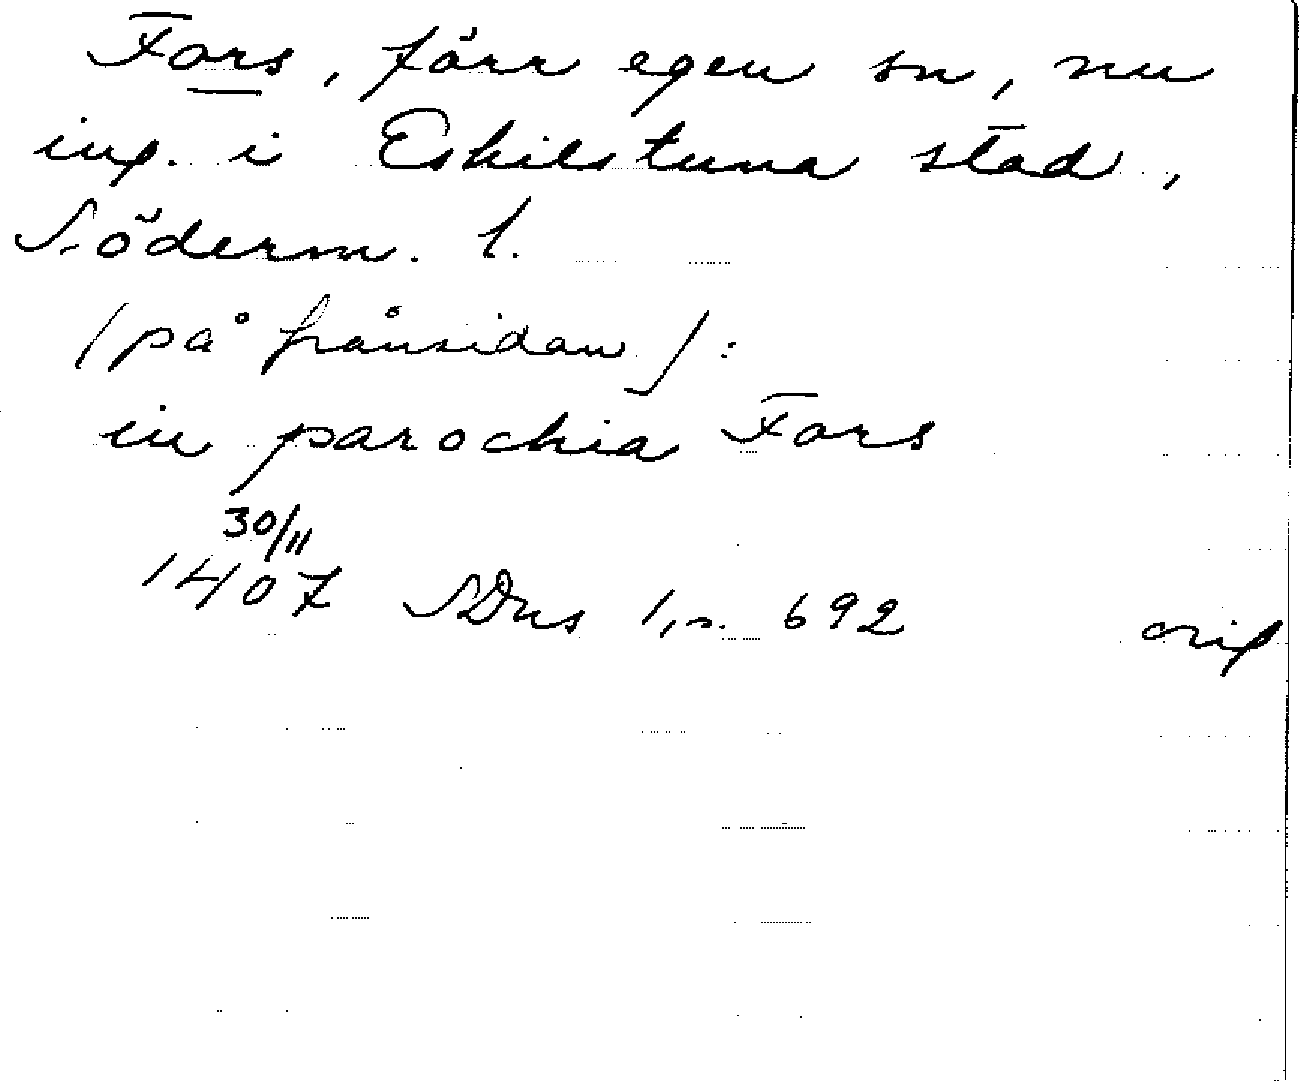 Fors, förr egen sn, nu
ing. i Eskilstuna stad,
Söderm. l.
/på frånsidan/:
in parochia Fors
30/11
1407 SDns 1, s. 692 orig